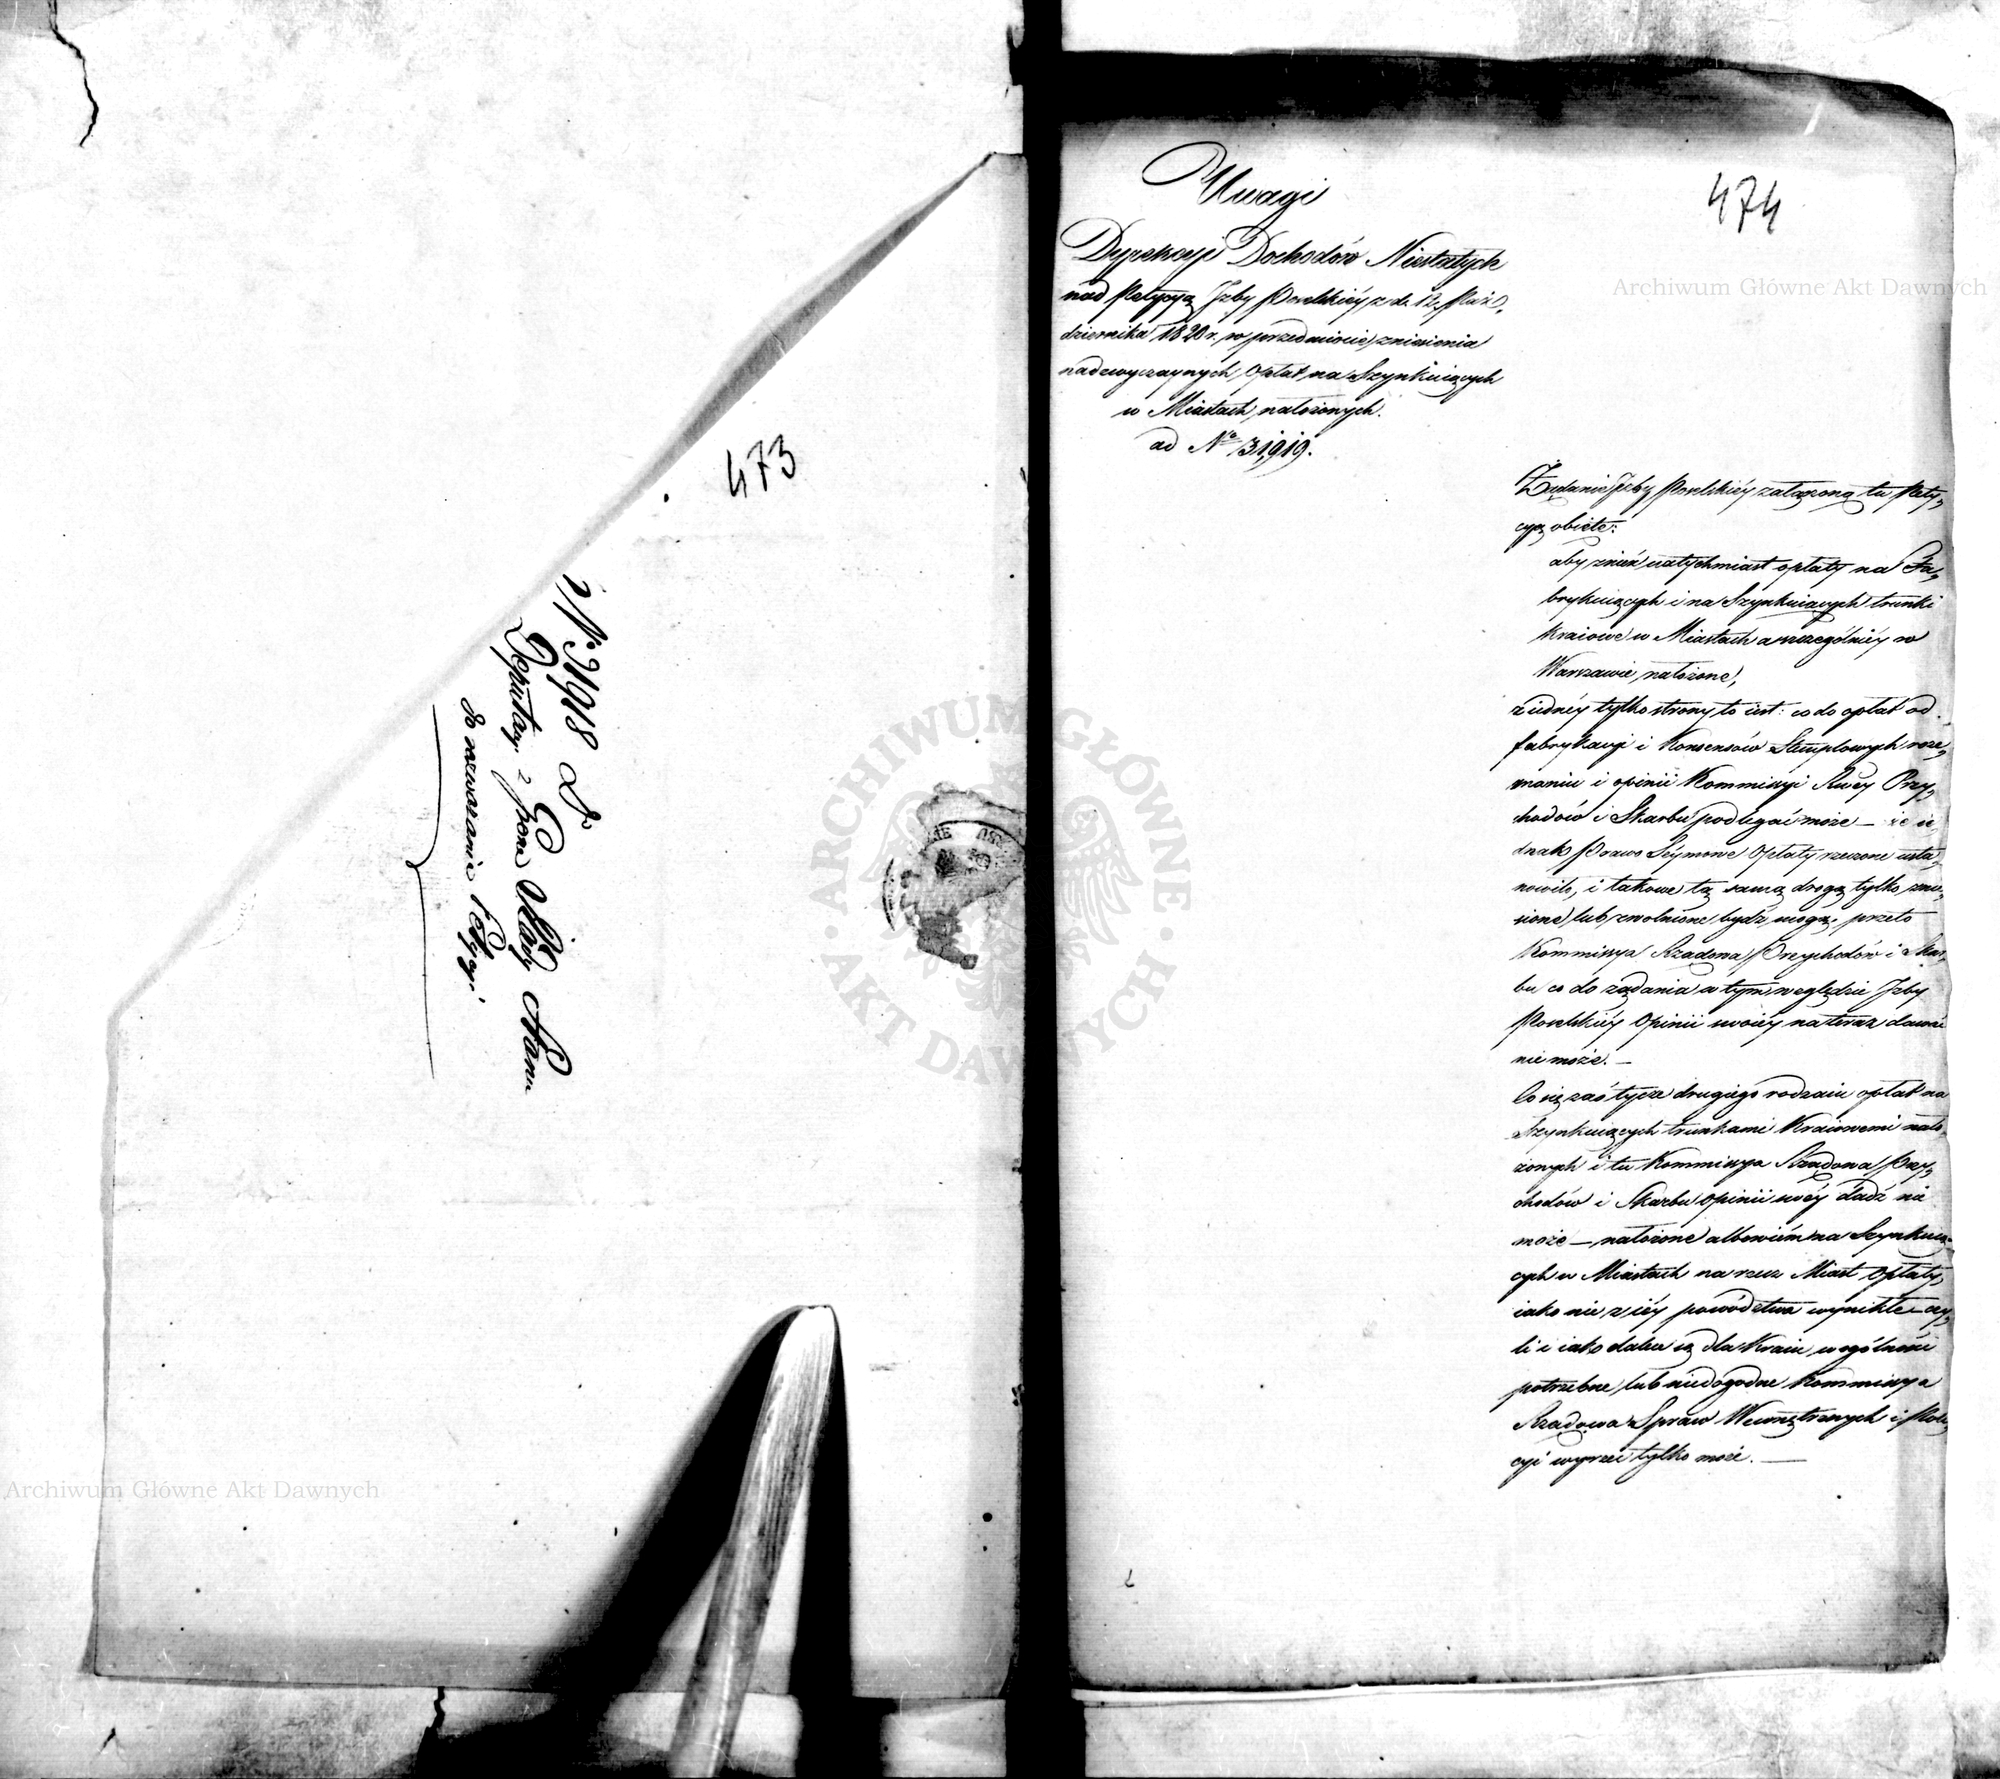 473
N. 31918 D.
Deputacy. z Grona Rady Stanu
do rozważania Petycyi
474
Uwagi
Dyrekcyi Dochodów Niestałych
nad Petycyą Izby Poselskiéy z d. 12. Paź„
dziernika 1820 r. w przedmiocie zniesienia
nadzwyczaynych Opłat na Szynkuiących
w Miastach nałożonych.
ad Nro 31,919.
Żądanie Izby Poselskiéy załączoną tu Pety„
cyą obięte:
aby znieść natychmiast opłaty na Fa„
brykuiących i na Szynkuiących trunki
kraiowe w Miastach a szczególniéy w
Warszawie nałożone,
z iednéy tylko strony to iest: co do opłat od
fabrykacyi i Konsensów Stemplowych roze„
znaniu i opinii Kommissyi Rwéy Przy„
chodów i Skarbu podlegać może — że ie„
dnak Prawo Seymowe Opłaty rzeczone usta„
nowiło, i takowe tą samą drogą tylko znie„
sione lub zwolnione bydź mogą; przeto
Kommissya Rządowa Przychodów i Skar„
bu co do żądania w tym względzie Izby
Poselskiéy Opinii swoiéy na teraz dawać
nie może. —
Co się zaś tycze drugiego rodzaiu opłat na
Szynkuiących trunkami Kraiowemi nało„
żonych i tu Kommissya Rządowa Przy„
chodów i Skarbu opinii swéy dadź nie
może — nałożone albowiém na Szynkuią„
cych w Miastach na rzecz Miast Opłaty,
iako nie z iéy powództwa wynikłe — czy„
li i iako dalece są dla Kraiu w ogólności
potrzebne lub niedogodne Kommissya
Rządowa Spraw Wewnętrznych i Poli„
cyi wyrzec tylko może. —
Archiwum Główne Akt Dawnych
Archiwum Główne Akt Dawnych
ARCHIWUM GŁÓWNE · AKT DAWNYCH ·